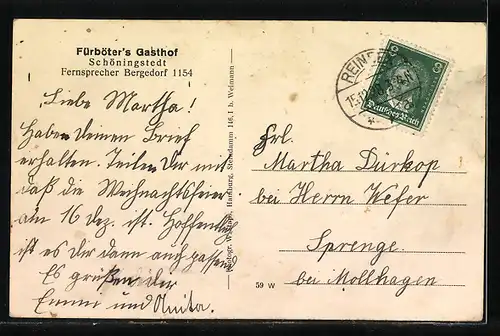 Fürböter's Gasthof
Schöningstedt
Fernsprecher Bergedorf 1154
Liebe Martha!
Haben deinen Brief
erhalten. Teilen dir mit
daß die Weihnachtsfeier
am 16 Dez. ist. Hoffentlich
ist es dir dann auch passend
Es grüßen dir
Emmi und Anita.
Photogr. Hamburg, Steindamm 146, I b. Weimann
59 W
REINBEK
8 8
Deutsches Reich
Frl.
Martha Dürkop
bei Herrn Kefer
Sprenge
bei Mollhagen